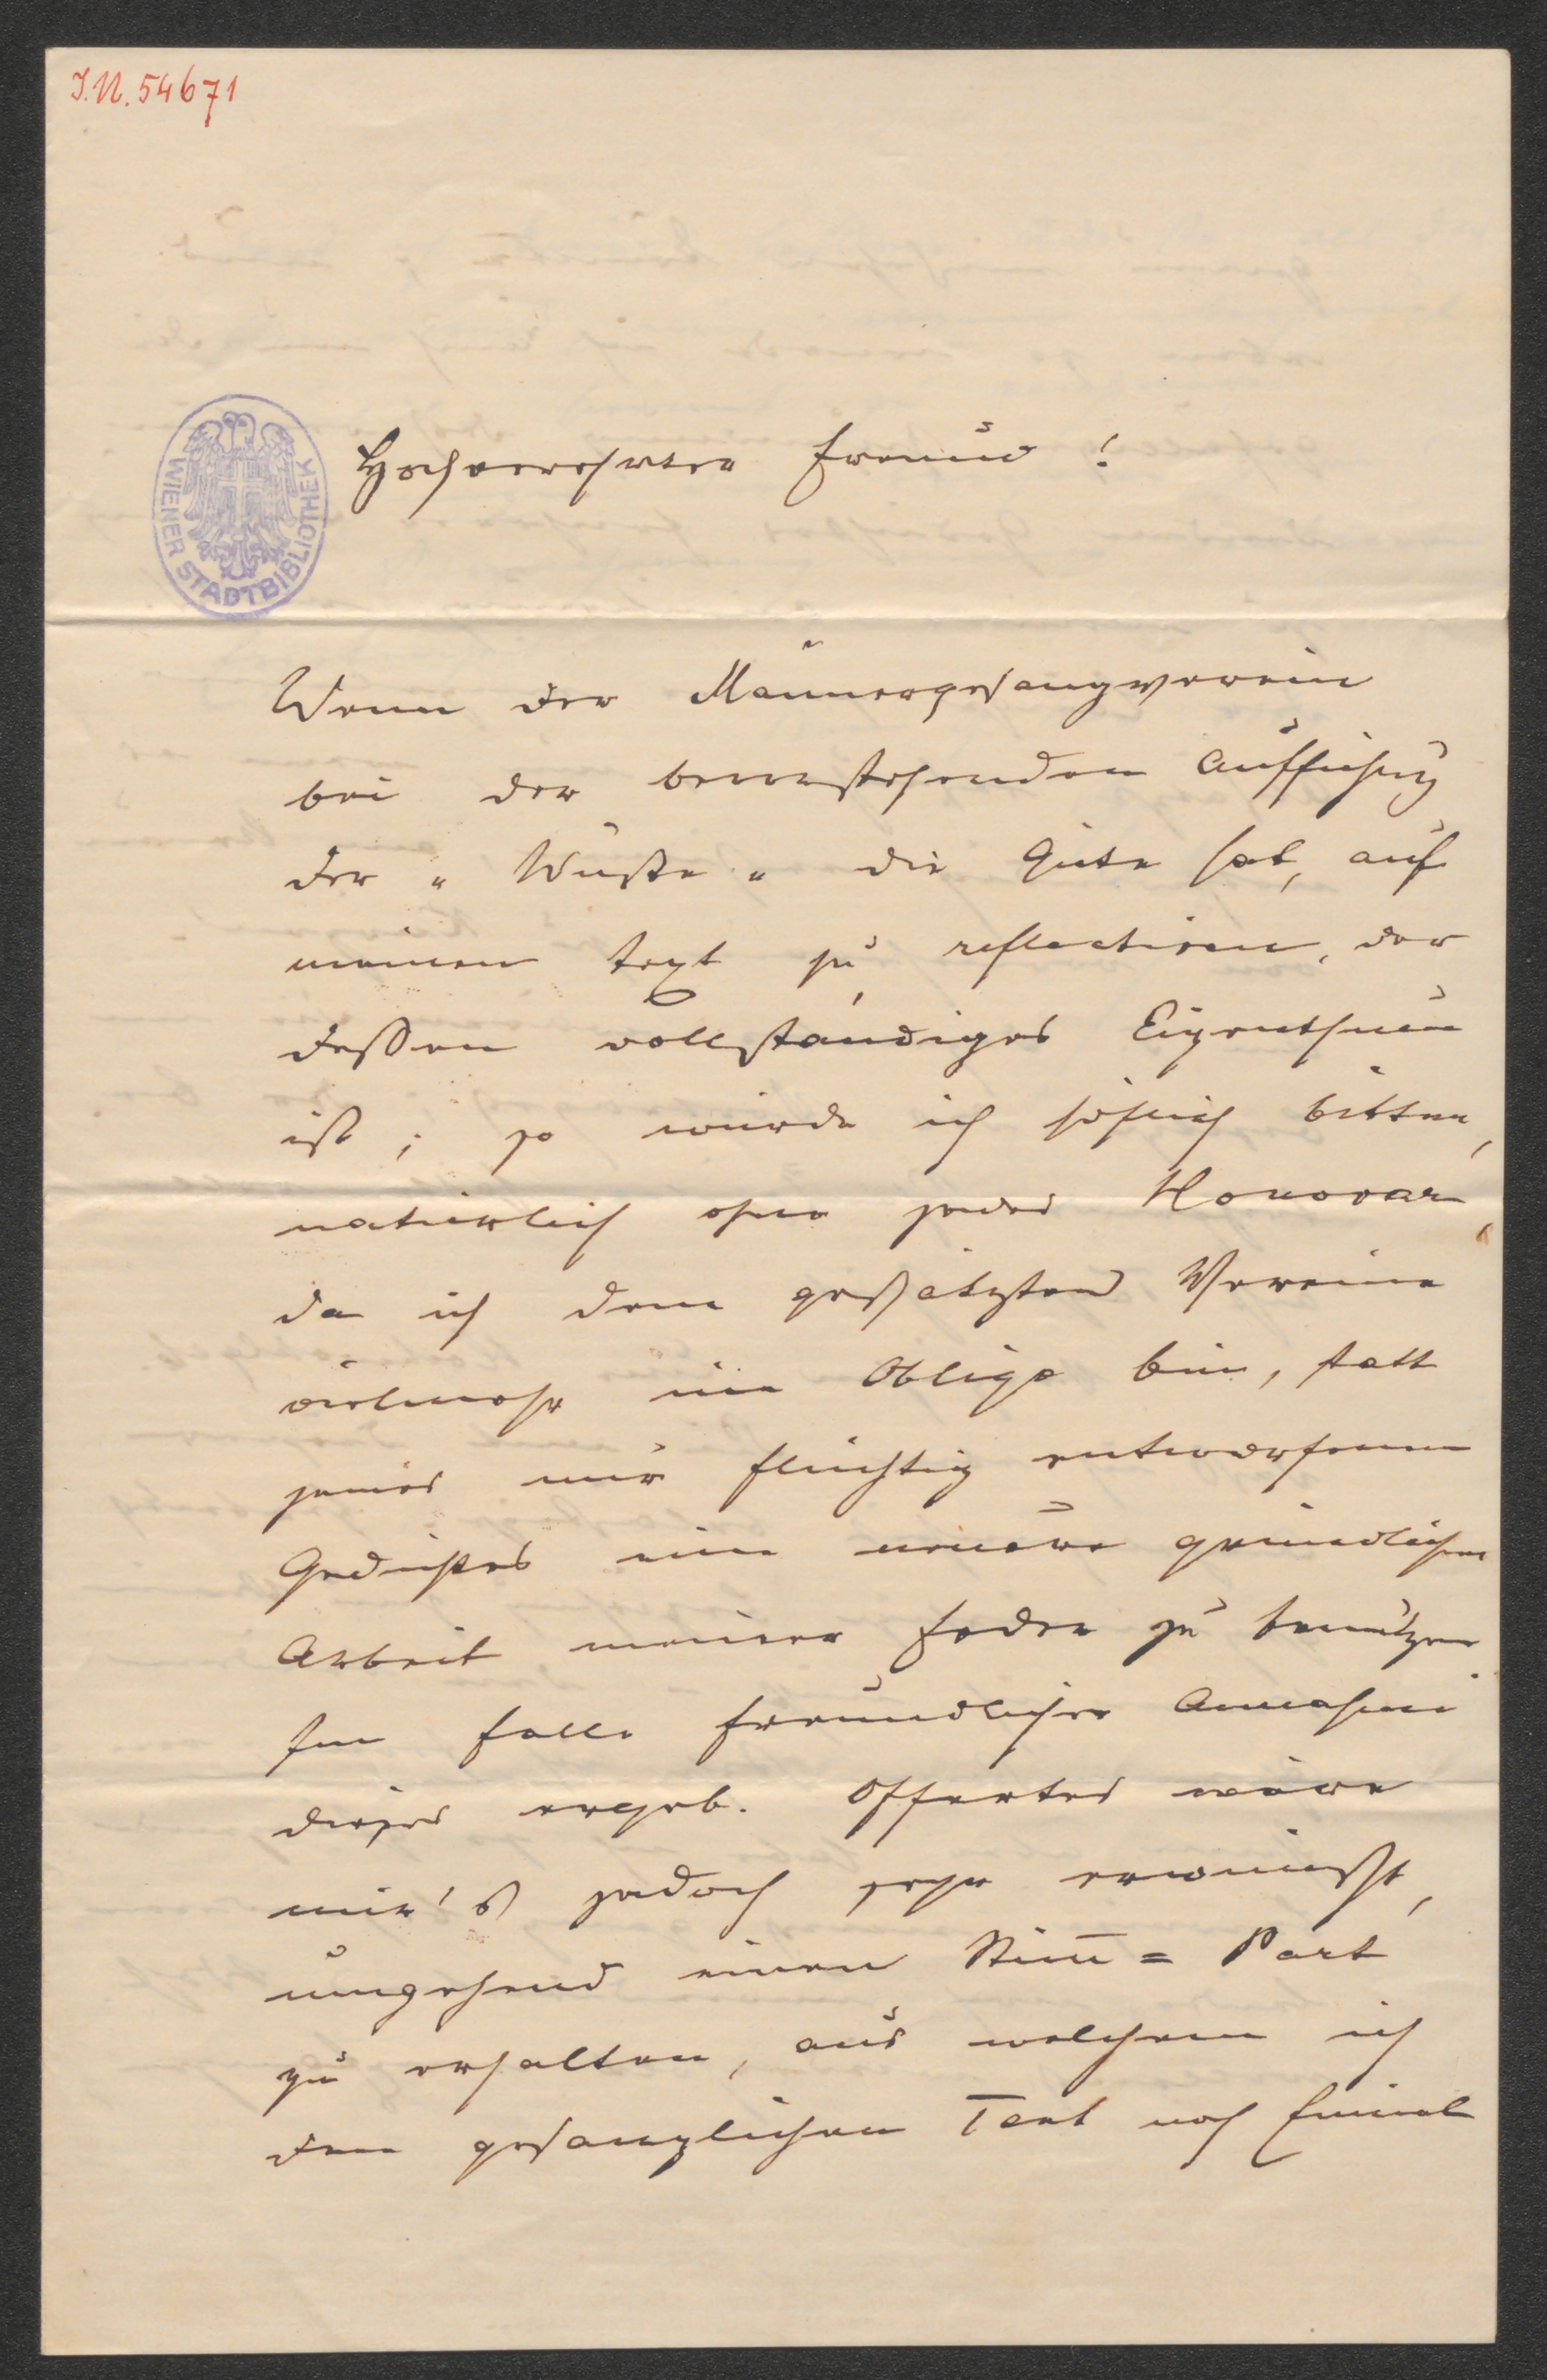 I.N. 54671
WIENER STADTBIBLIOTHEK
Hochverehrter Freund!
Wenn der Männergesangverein
bei der bevorstehenden Aufführung
der „Wüste„ die Güte hat, auf
meinen Text zu reflectiren, der
dessen vollständiges Eigenthum
ist; so würde ich höflich bitten,
natürlich ohne jedes Honorar,
da ich dem geschätzten Vereine
vielmehr im Obligo bin, statt
jenes nur flüchtig entworfenen
Gedichtes eine neuere gründlichere
Arbeit meiner Feder zu benützen
Im Falle freundlicher Annahme
dieses ergeb. Offertes wäre
mir's jedoch sehr erwünscht,
umgehend einen Stim̄=Part
zu erhalten, aus welchem ich
den gesanglichen Text noch Einmal